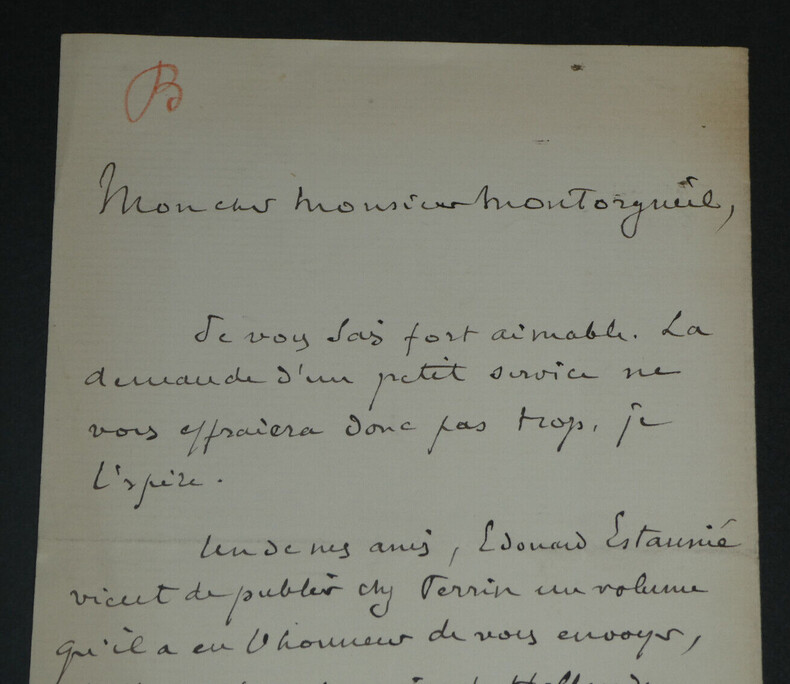 B
Mon cher Monsieur Montorgueil,
Je vous sais fort aimable. La
demande d'un petit service ne
vous effraiera donc pas trop, je
l'espère.
Un de mes amis, Edouard Estaunié
vient de publier chez Perrin un volume
qu'il a eu l'honneur de vous envoyer,
Hollande